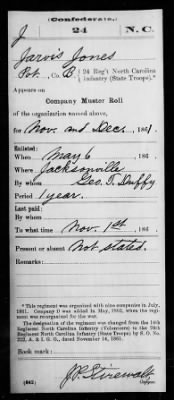 (Confederate.)
J 24 N.C.
Jarvis Jones
Pvt., Co. B, 24 Reg't North Carolina
Infantry (State Troops).*
Appears on
Company Muster Roll
of the organization named above,
for Nov. and Dec., 1861.
Enlisted:
When May 6, 186 .
Where Jacksonville
By whom Geo. T. Duffy
Period 1 year.
Last paid:
By whom
To what time Nov. 1st, 186 .
Present or absent Not stated.
Remarks:
*This regiment was organized with nine companies in July,
1861. Company D was added in May, 1862, when the regi-
ment was reorganized for the war.
The designation of the regiment was changed from the 14th
Regiment North Carolina Infantry (Volunteers) to the 24th
Regiment North Carolina Infantry (State Troops) by S. O. No.
222, A. & I. G. O., dated November 14, 1861.
Book mark:
J.P. Stirewalt
(642) Copyist.